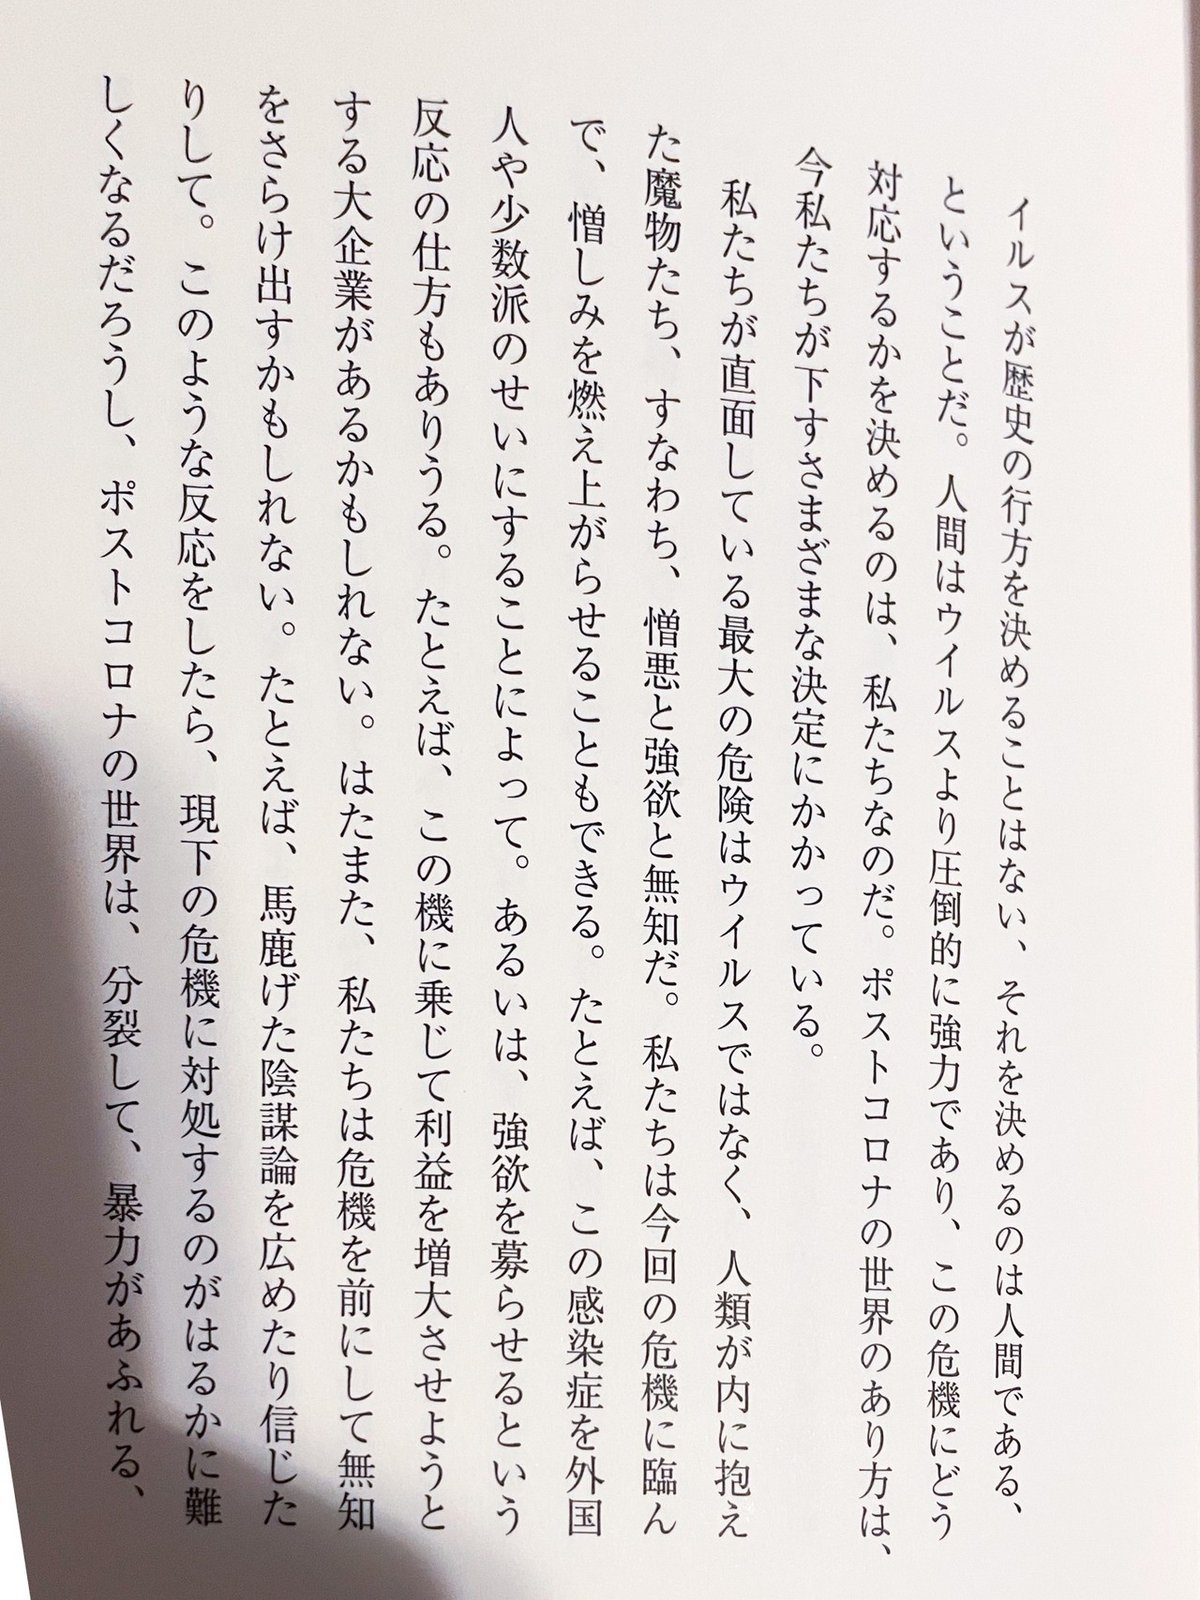 イルスが歴史の行方を決めることはない、それを決めるのは人間である、
ということだ。人間はウイルスより圧倒的に強力であり、この危機にどう
対応するかを決めるのは、私たちなのだ。ポストコロナの世界のあり方は、
今私たちが下すさまざまな決定にかかっている。
私たちが直面している最大の危険はウイルスではなく、人類が内に抱え
た魔物たち、すなわち、憎悪と強欲と無知だ。私たちは今回の危機に臨ん
で、憎しみを燃え上がらせることもできる。たとえば、この感染症を外国
人や少数派のせいにすることによって。あるいは、強欲を募らせるという
反応の仕方もありうる。たとえば、この機に乗じて利益を増大させようと
する大企業があるかもしれない。はたまた、私たちは危機を前にして無知
をさらけ出すかもしれない。たとえば、馬鹿げた陰謀論を広めたり信じた
りして。このような反応をしたら、現下の危機に対処するのがはるかに難
しくなるだろうし、ポストコロナの世界は、分裂して、暴力があふれる、